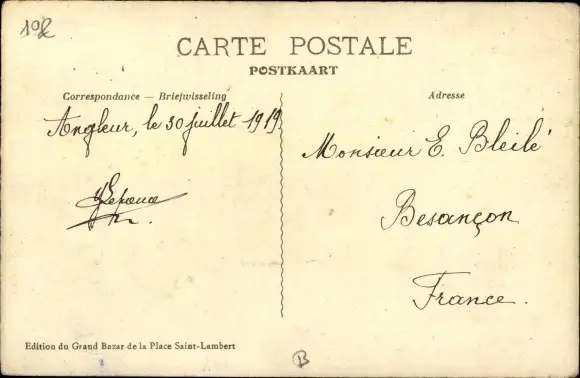 CARTE POSTALE
POSTKAART
Correspondance — Briefwisseling
Adresse
Angleur, le 30 juillet 1919
Monsieur E. Bleilé
Besançon
France.
Edition du Grand Bazar de la Place Saint-Lambert
B